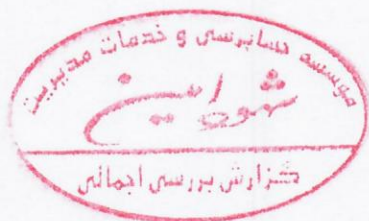 موسسه حسابرسی و خدمات مدیریت
شهود امین
گزارش بررسی اجمالی